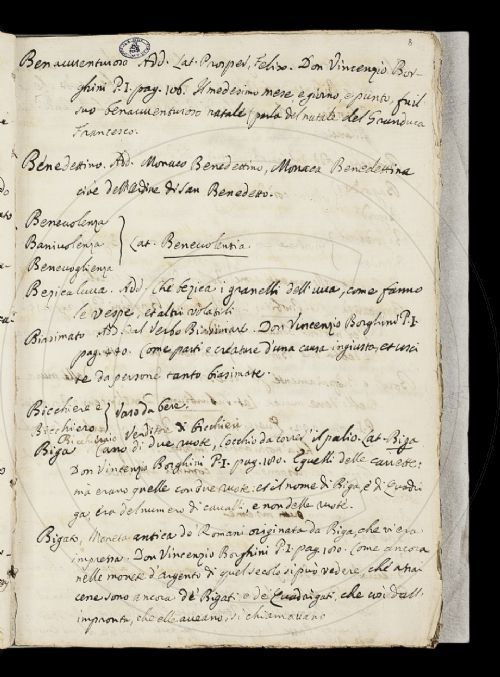 8
Benavventuroso Add. Lat. Prosper, Felix. Don Vincenzio Bor-
ghini P. I. pag. 106. Il medesimo mese e giorno, e punto, fu il
suo benavventuroso natale (parla del natale del Granduca
Francesco.
Benedettino. Add. Monaco Benedettino, Monaca Benedettina
cioè dell'Ordine di San Benedetto.
Benevolenza
Banivolenza
Benevoglienza
Lat. Benevolentia.
Bezicaluva. Add. Che bezica i granelli dell'uva, come fanno
le vespe, et altri volatili
Biasimato Add. dal Verbo Biasimare. Don Vincenzio Borghini P. I.
pag. 440. Come parti e creature d'una causa ingiusta, et usci-
te da persone tanto biasimate.
Bicchiere e
Bicchiero
Vaso da bere.
Bicchieraio Venditor di Bicchieri
Biga Carro di due ruote, Cocchio da correr' il palio. Lat. Biga
Don Vincenzio Borghini P. I. pag. 180. E quelli delle carrette:
ma erano quelle con due ruote: et il nome di Biga, e di Quadri-
ga, era del numero di cavalli, e non delle ruote.
Bigato, Moneta antica de Romani originata da Biga, che vi era
impressa. Don Vincenzio Borghini P. I. pag. 180. Come ancora
nelle monete d'argento di quel secolo si può vedere, che assai
cene sono ancora de' Bigati e de' Quadrigati, che così dall'
impronta, che elle aveano, si chiamavano